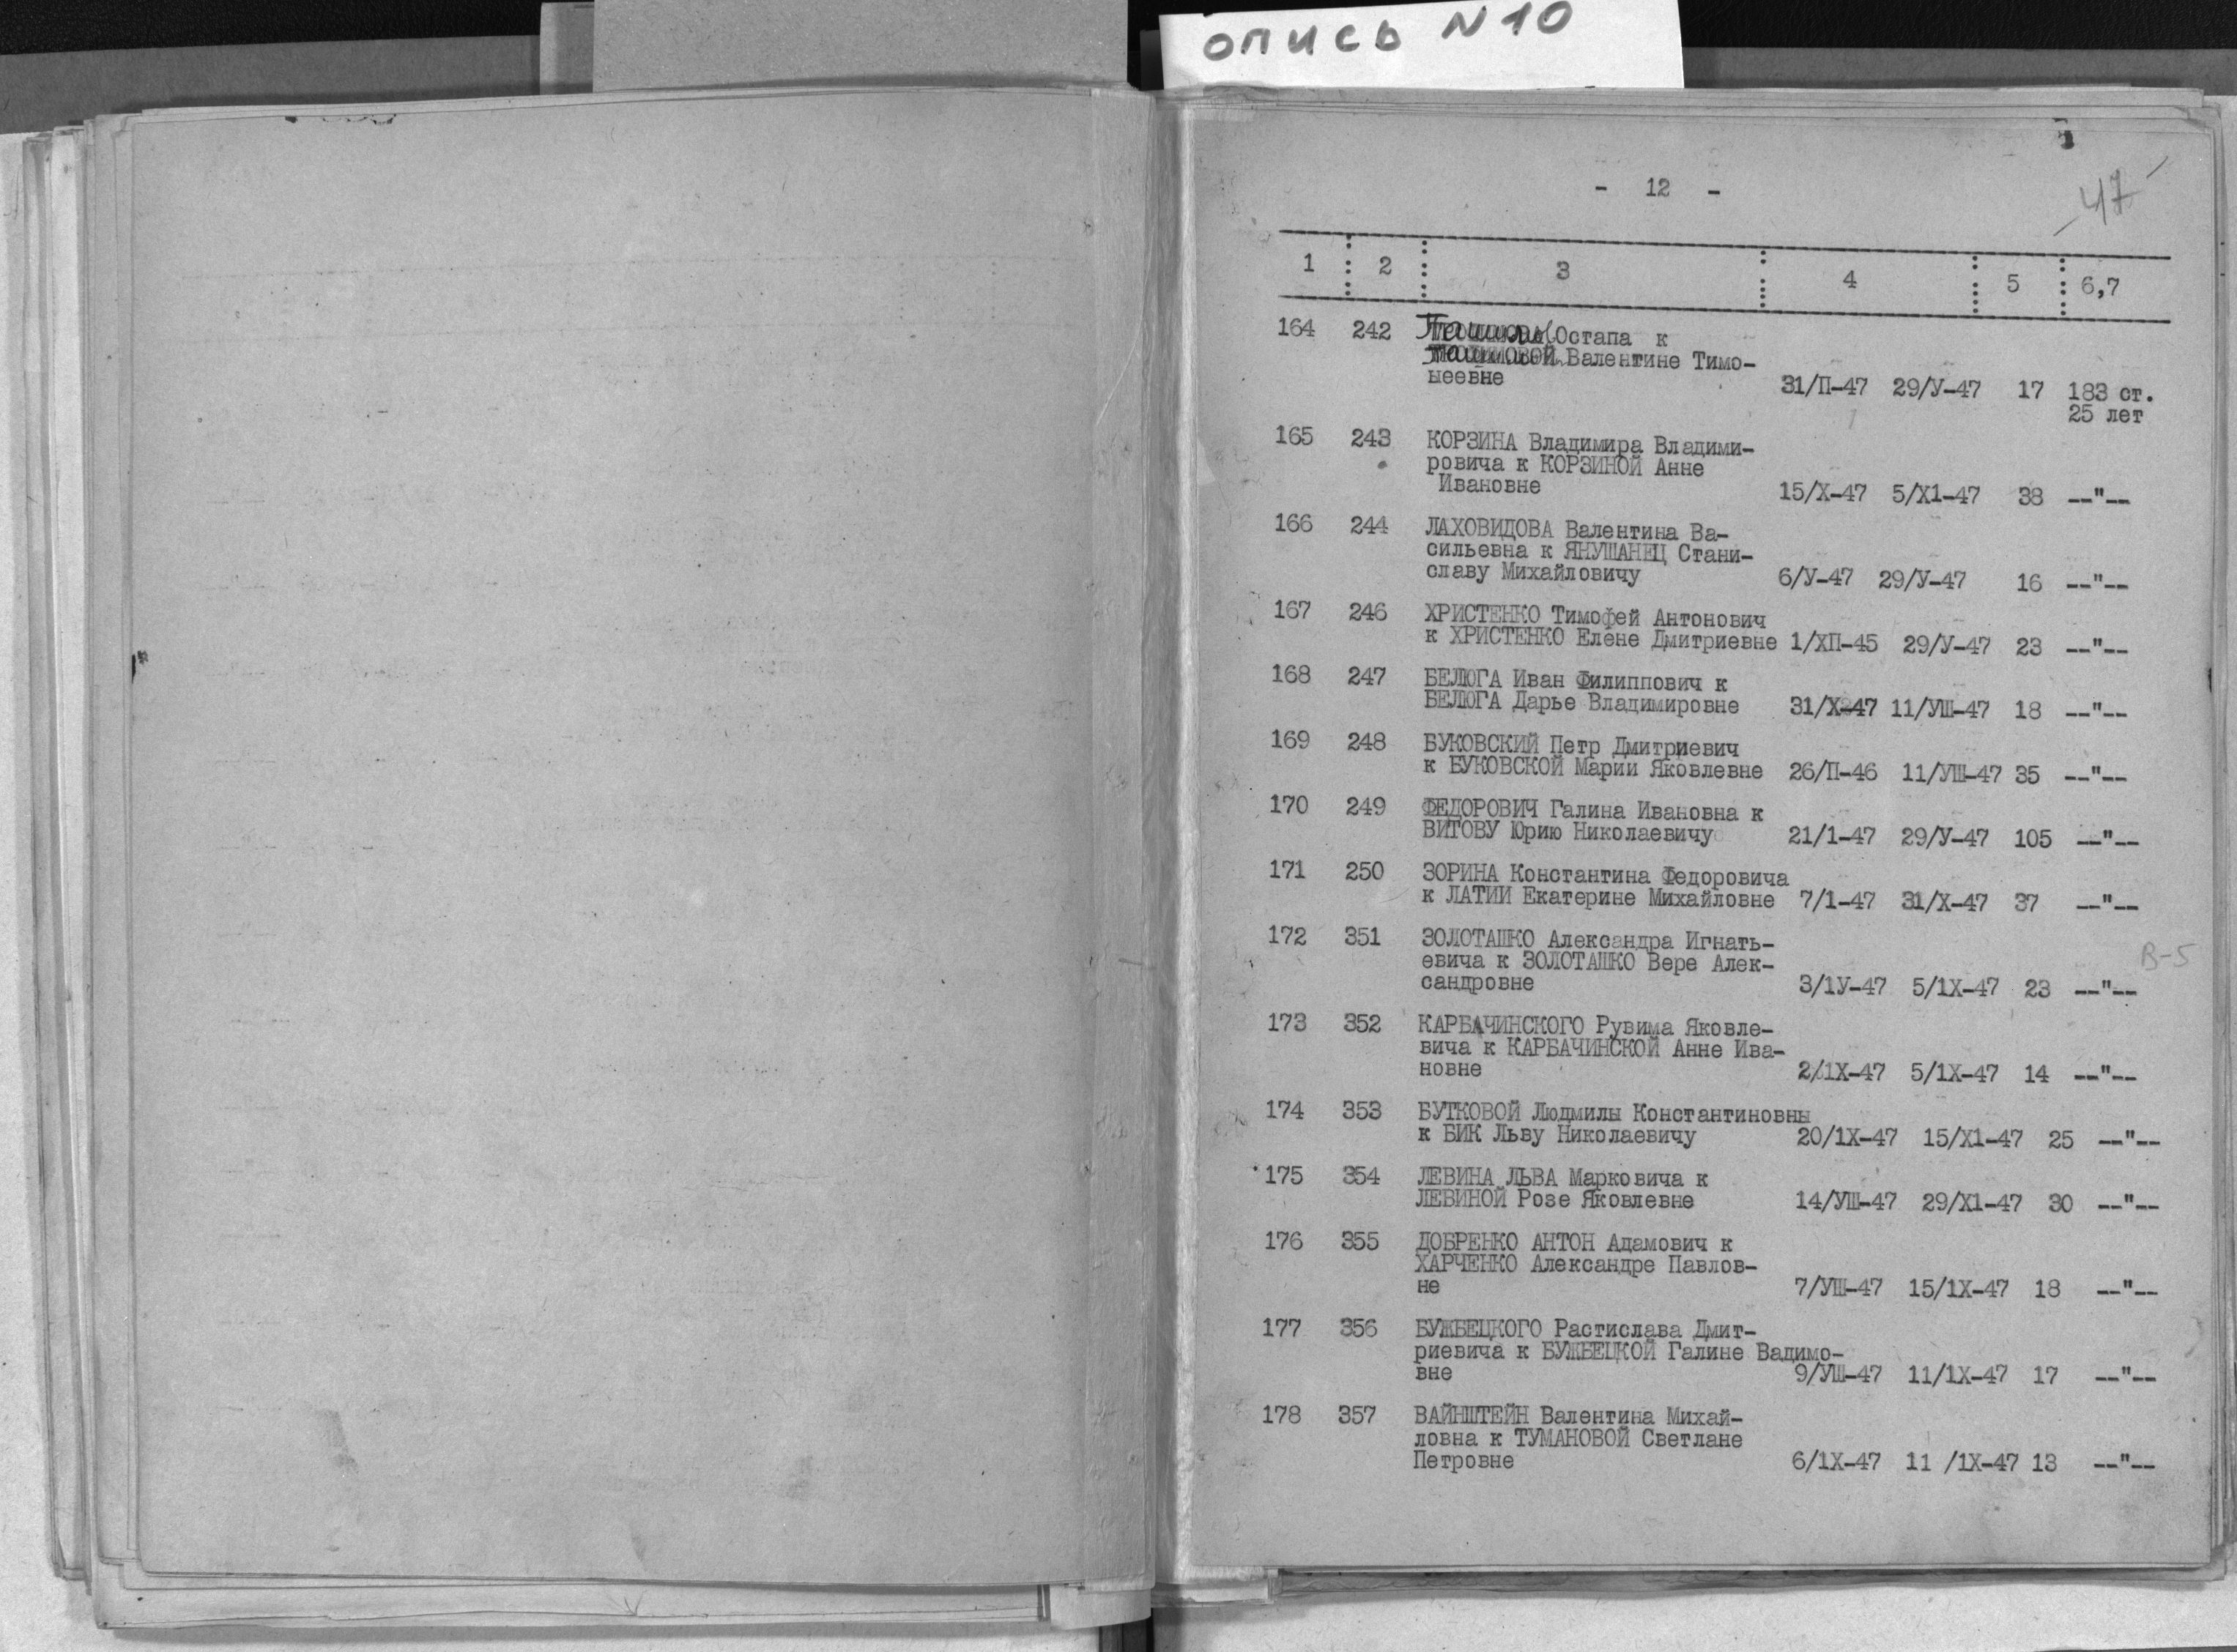 опись N 10
- 12 -
47
1 2 3 4 5 6,7
164 242 Остапа к
Валентине Тимо-
ыеевне 31/П-47 29/У-47 17 183 ст.
25 лет
165 243 КОРЗИНА Владимира Владими-
ровича к КОРЗИНОЙ Анне
Ивановне 15/X-47 5/X1-47 38 --"--
166 244 ЛАХОВИДОВА Валентина Ва-
сильевна к ЯНУШАНЕЦ Стани-
славу Михайловичу 6/У-47 29/У-47 16 --"--
167 246 ХРИСТЕНКО Тимофей Антонович
к ХРИСТЕНКО Елене Дмитриевне 1/ХП-45 29/У-47 23 --"--
168 247 БЕЛЮГА Иван Филиппович к
БЕЛЮГА Дарье Владимировне 31/X-47 11/УШ-47 18 --"--
169 248 БУКОВСКИЙ Петр Дмитриевич
к БУКОВСКОЙ Марии Яковлевне 26/П-46 11/УШ-47 35 --"--
170 249 ФЕДОРОВИЧ Галина Ивановна к
ВИТОВУ Юрию Николаевичу 21/1-47 29/У-47 105 --"--
171 250 ЗОРИНА Константина Федоровича
к ЛАТИИ Екатерине Михайловне 7/1-47 31/X-47 37 --"--
172 351 ЗОЛОТАШКО Александра Игнать-
евича к ЗОЛОТАШКО Вере Алек-
сандровне 3/1У-47 5/1X-47 23 --"--
В-5
173 352 КАРБАЧИНСКОГО Рувима Яковле-
вича к КАРБАЧИНСКОЙ Анне Ива-
новне 2/1X-47 5/1X-47 14 --"--
174 353 БУТКОВОЙ Людмилы Константиновны
к БИК Льву Николаевичу 20/1X-47 15/X1-47 25 --"--
175 354 ЛЕВИНА ЛЬВА Марковича к
ЛЕВИНОЙ Розе Яковлевне 14/УШ-47 29/X1-47 30 --"--
176 355 ДОБРЕНКО АНТОН Адамович к
ХАРЧЕНКО Александре Павлов-
не 7/УШ-47 15/1X-47 18 --"--
177 356 БУЖБЕЦКОГО Растислава Дмит-
риевича к БУЖБЕЦКОЙ Галине Вадимо-
вне 9/УШ-47 11/1X-47 17 --"--
178 357 ВАЙНШТЕЙН Валентина Михай-
ловна к ТУМАНОВОЙ Светлане
Петровне 6/1X-47 11 /1X-47 13 --"--